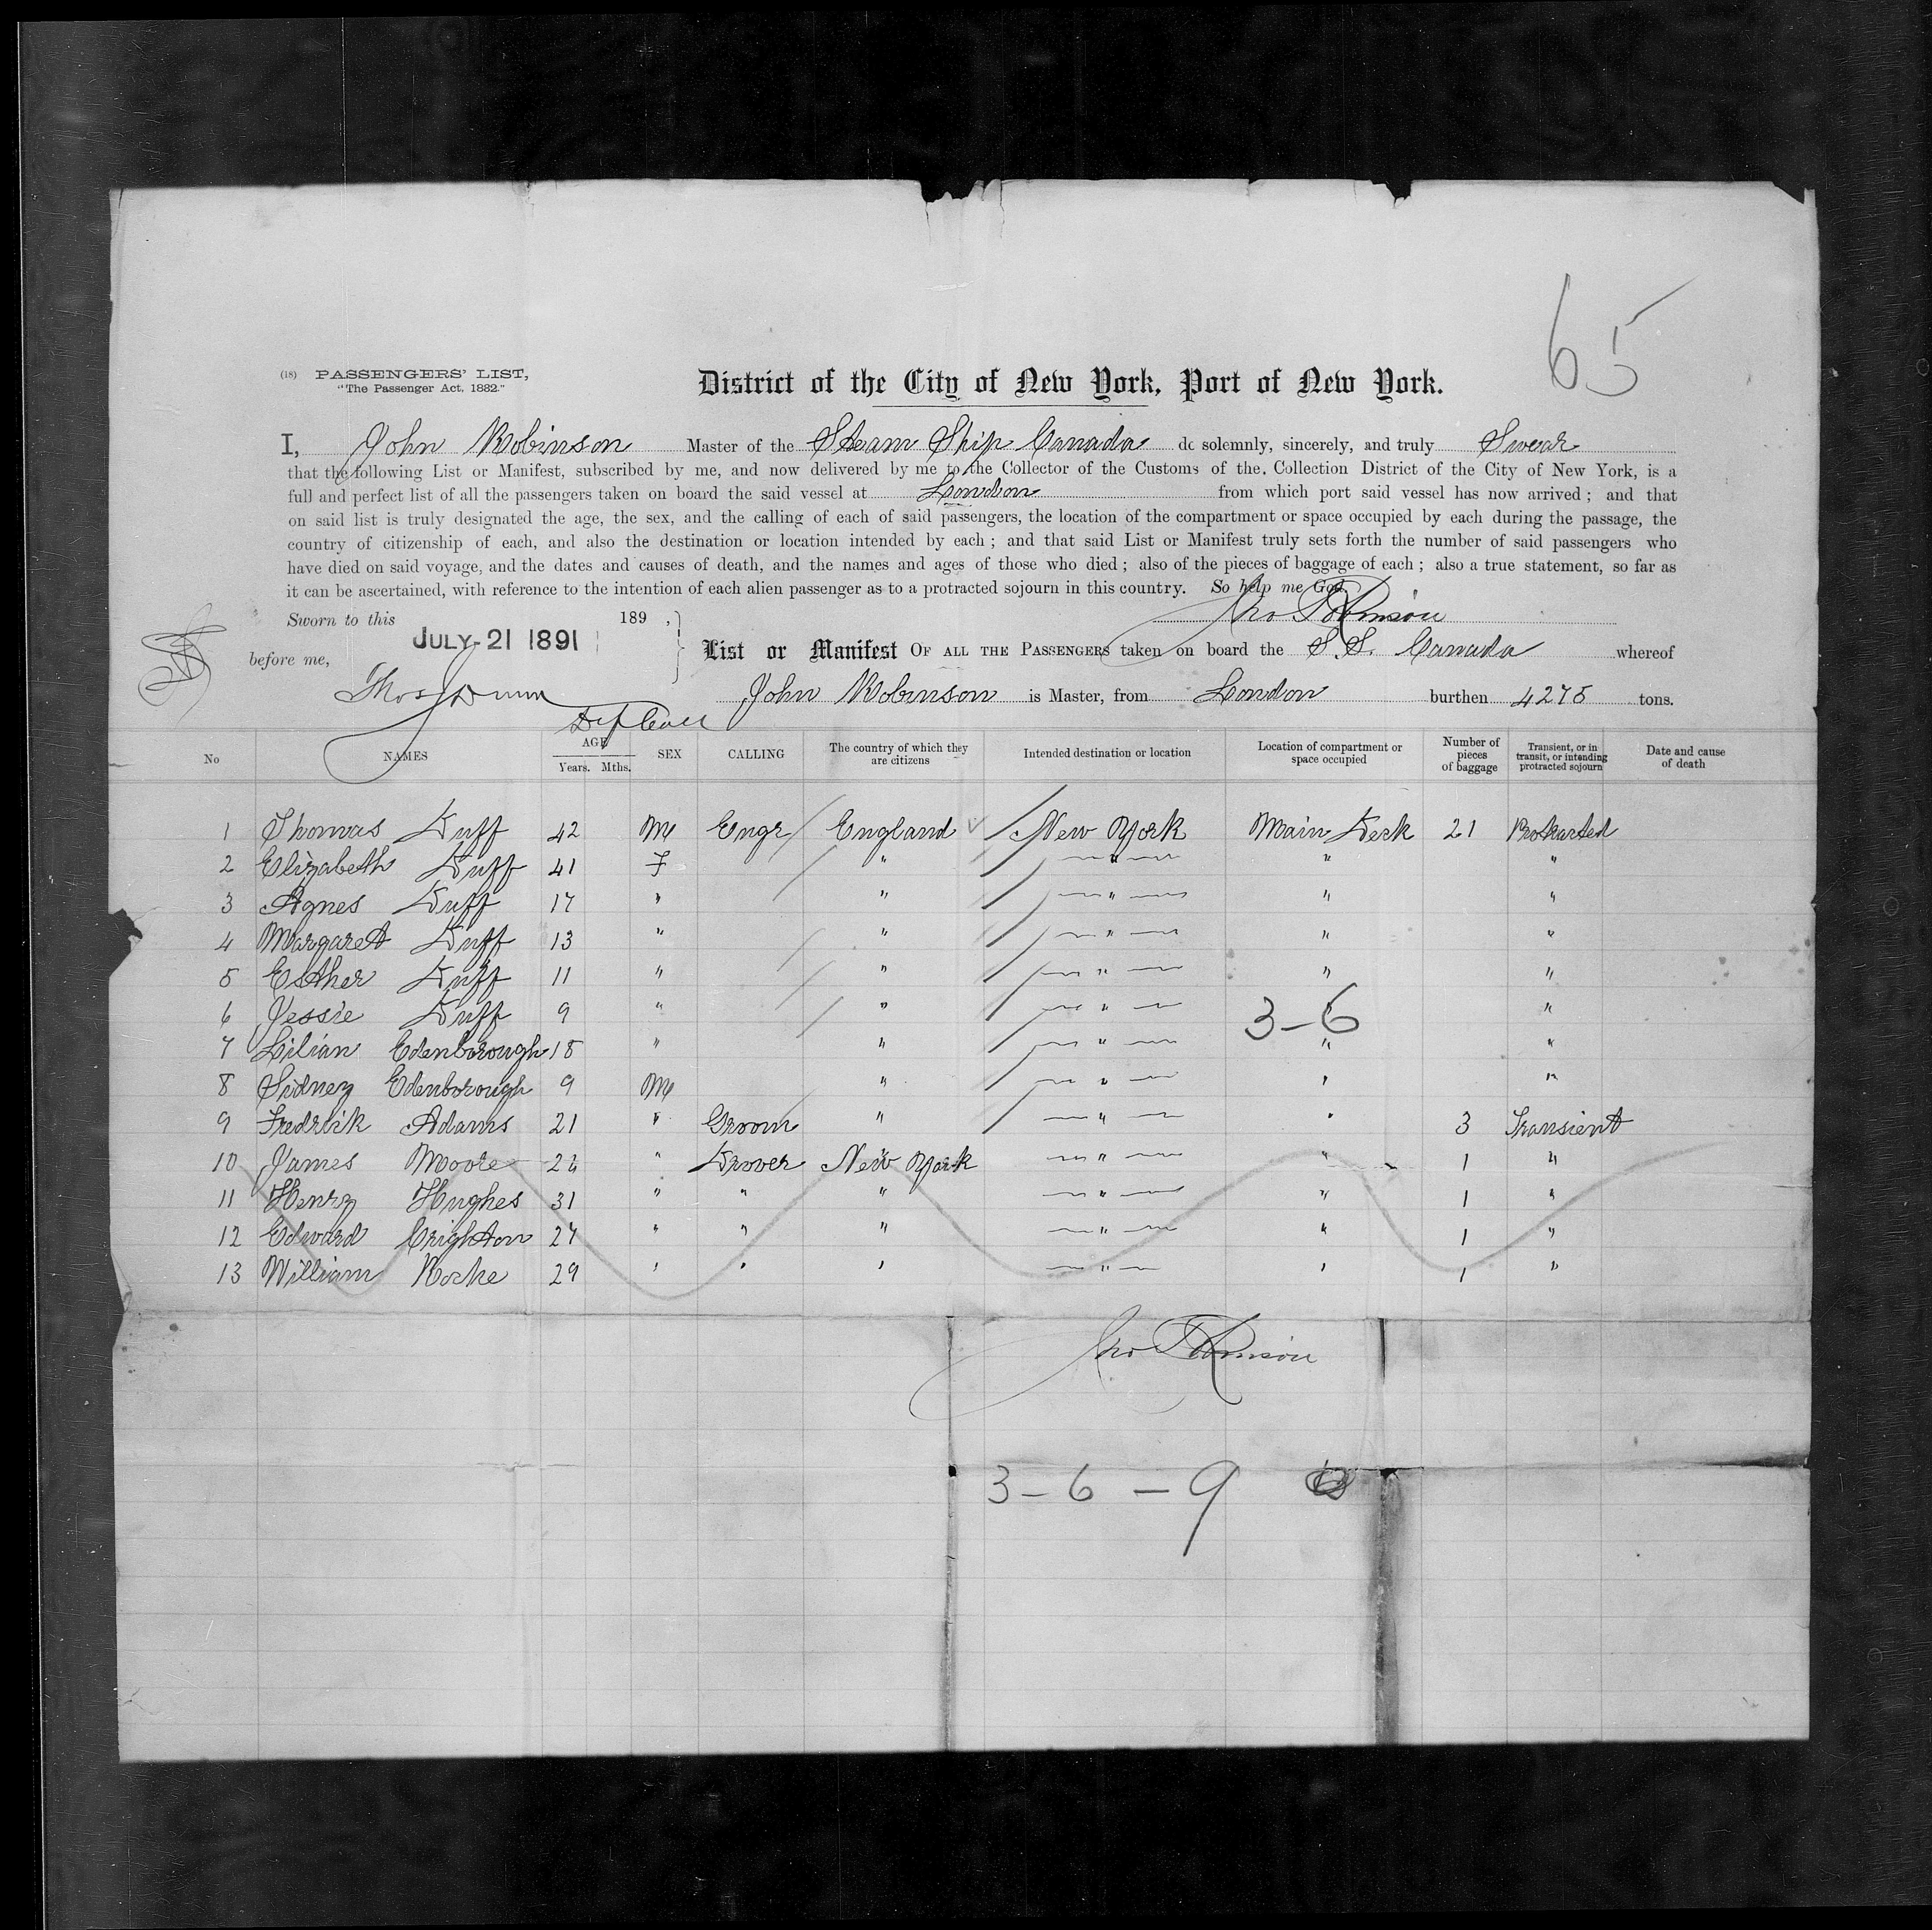 65
(18) PASSENGERS' LIST,
"The Passenger Act, 1882."
District of the City of New York, Port of New York.
I, John Robinson Master of the Steam Ship Canada do solemnly, sincerely, and truly Swear
that the following List or Manifest, subscribed by me, and now delivered by me to the Collector of the Customs of the. Collection District of the City of New York, is a
full and perfect list of all the passengers taken on board the said vessel at London from which port said vessel has now arrived ; and that
on said list is truly designated the age, the sex, and the calling of each of said passengers, the location of the compartment or space occupied by each during the passage, the
country of citizenship of each, and also the destination or location intended by each ; and that said List or Manifest truly sets forth the number of said passengers who
have died on said voyage, and the dates and causes of death, and the names and ages of those who died ; also of the pieces of baggage of each ; also a true statement, so far as
it can be ascertained, with reference to the intention of each alien passenger as to a protracted sojourn in this country. So help me God.
Sworn to this 189 , Jno Robinson
JULY 21 1891
before me, List or Manifest OF ALL THE PASSENGERS taken on board the S.S. Canada whereof
Thos J Dunn John Robinson is Master, from London burthen 4275 tons.
Dep Coll
No NAMES AGE Years. Mths. SEX CALLING The country of which they are citizens Intended destination or location Location of compartment or space occupied Number of pieces of baggage Transient, or in transit, or intending protracted sojourn Date and cause of death
1 Thomas Duff 42 M Engr England New York Main Deck 21 Protracted
2 Elizabeth Duff 41 F " " " "
3 Agnes Duff 17 " " " " "
4 Margaret Duff 13 " " " " "
5 Esther Duff 11 " " " " "
6 Jessie Duff 9 " " " " "
3-6
7 Lilian Edenborough 18 " " " " "
8 Sidney Edenborough 9 M " " " "
9 Fredrick Adams 21 " Groom " " " 3 Transient
10 James Moore 26 " Drover New York " " 1 "
11 Henry Hughes 31 " " " " " 1 "
12 Edward Crighton 27 " " " " " 1 "
13 William Roche 29 " " " " " 1 "
Jno Robinson
3-6-9